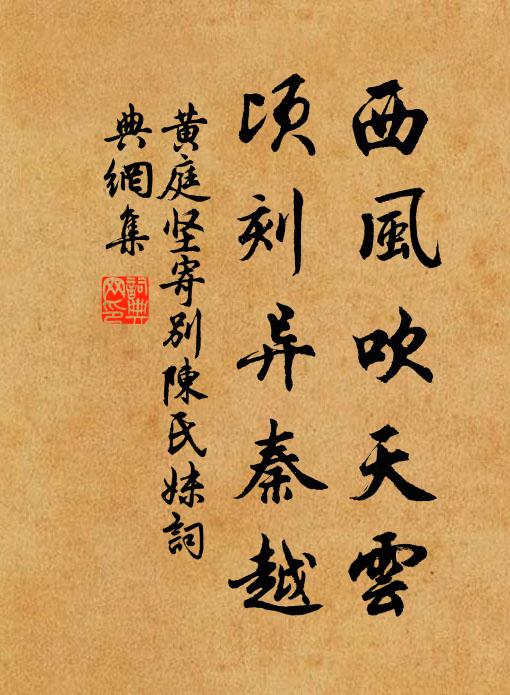 西風吹天雲
頃刻异秦越
黄庭坚寄别陳氏妹詞
典網集
詞典網印